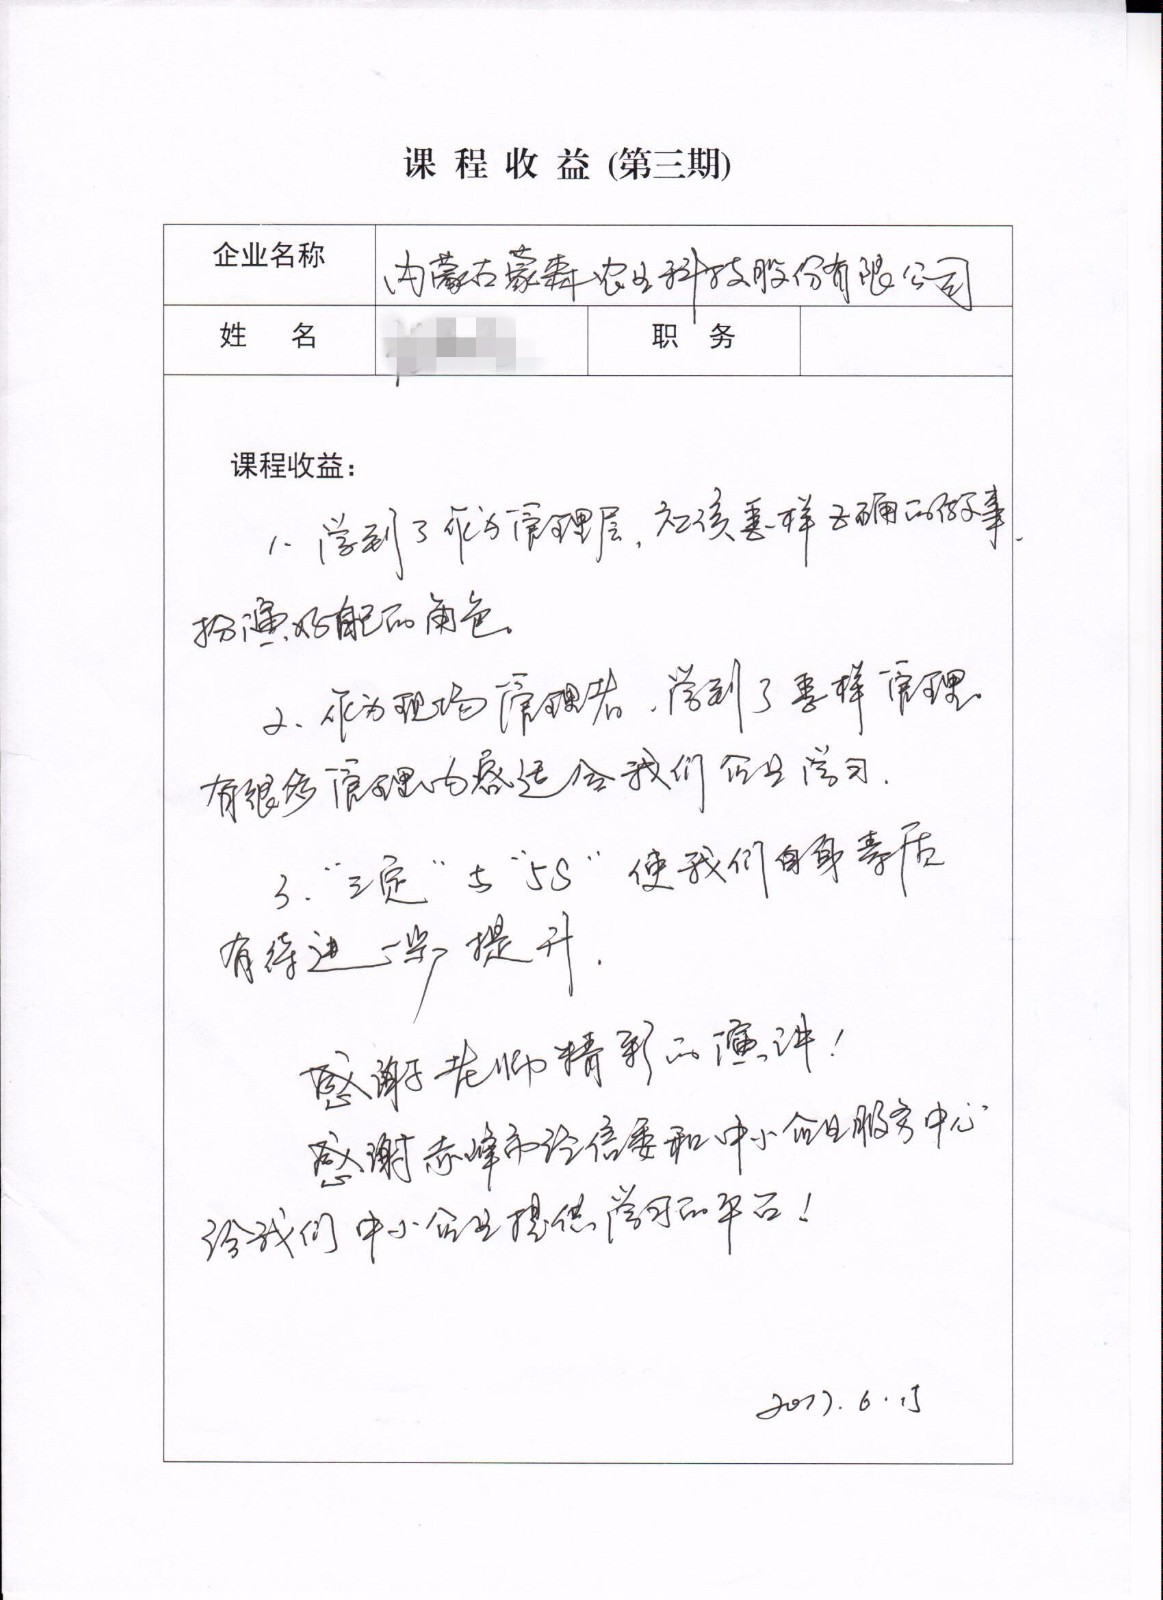 课程收益(第三期)
企业名称 内蒙古蒙森农业科技股份有限公司
姓 名 职 务
课程收益：
1. 学到了作为管理层，应该怎样正确的做事，
扮演好自己的角色。
2. 作为现场管理者，学到了怎样管理。
有很多管理内容适合我们企业学习.
3. “三定”与“5S”使我们自身素质
有待进一步提升.
感谢老师精彩的演讲！
感谢赤峰市经信委和中小企业服务中心
给我们中小企业提供学习的平台！
2017.6.15